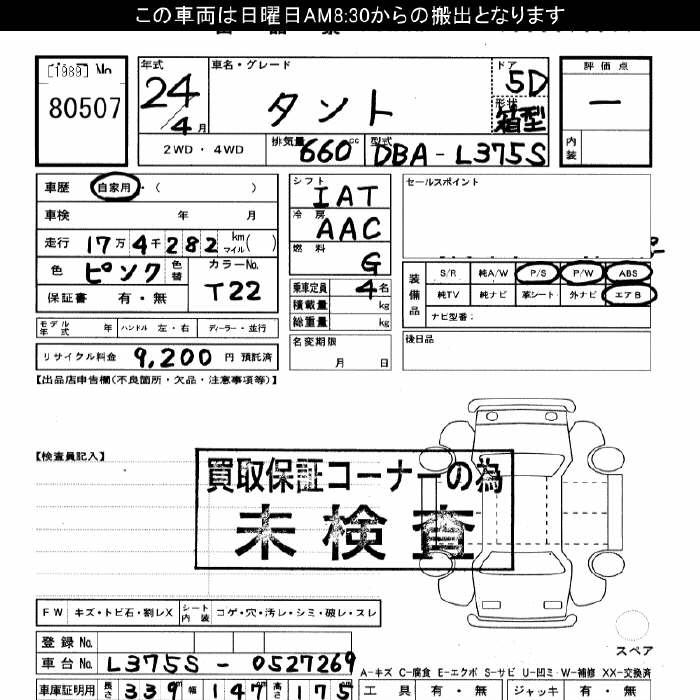 この車両は日曜日AM8:30からの搬出となります
[1989] No
80507
年式 車名・グレード ドア 評価点
24 タント 5D —
4月 形状 箱型
2WD・4WD 排気量 660 cc 型式 DBA-L375S 内装
車歴 自家用・( )
車検 年 月
走行 17万4千282 km マイル( )
色 ピンク 色替 カラーNo.
保証書 有・無 T22
モデル年式 年 ハンドル 左・右 ディーラー・並行
リサイクル料金 9,200 円 預託済
シフト IAT
冷房 AAC
燃料 G
乗車定員 4名
積載量 kg
総重量 kg
名変期限
月 日
セールスポイント
装備品 S/R 純A/W P/S P/W ABS
純TV 純ナビ 革シート 外ナビ エアB
ナビ型番:
後日品
【出品店申告欄(不良箇所・欠品・注意事項等)】
【検査員記入】
買取保証コーナーの為
未検査
FW キズ・トビ石・割レX シート内装 コゲ・穴・汚レ・シミ・破レ・スレ
スペア
登録No.
車台No. L375S-0527269
A-キズ C-腐食 E-エクボ S-サビ U-凹ミ W-補修 XX-交換済
車庫証明用 長さ 339 幅 147 高さ 175
工具 有・無 ジャッキ 有・無